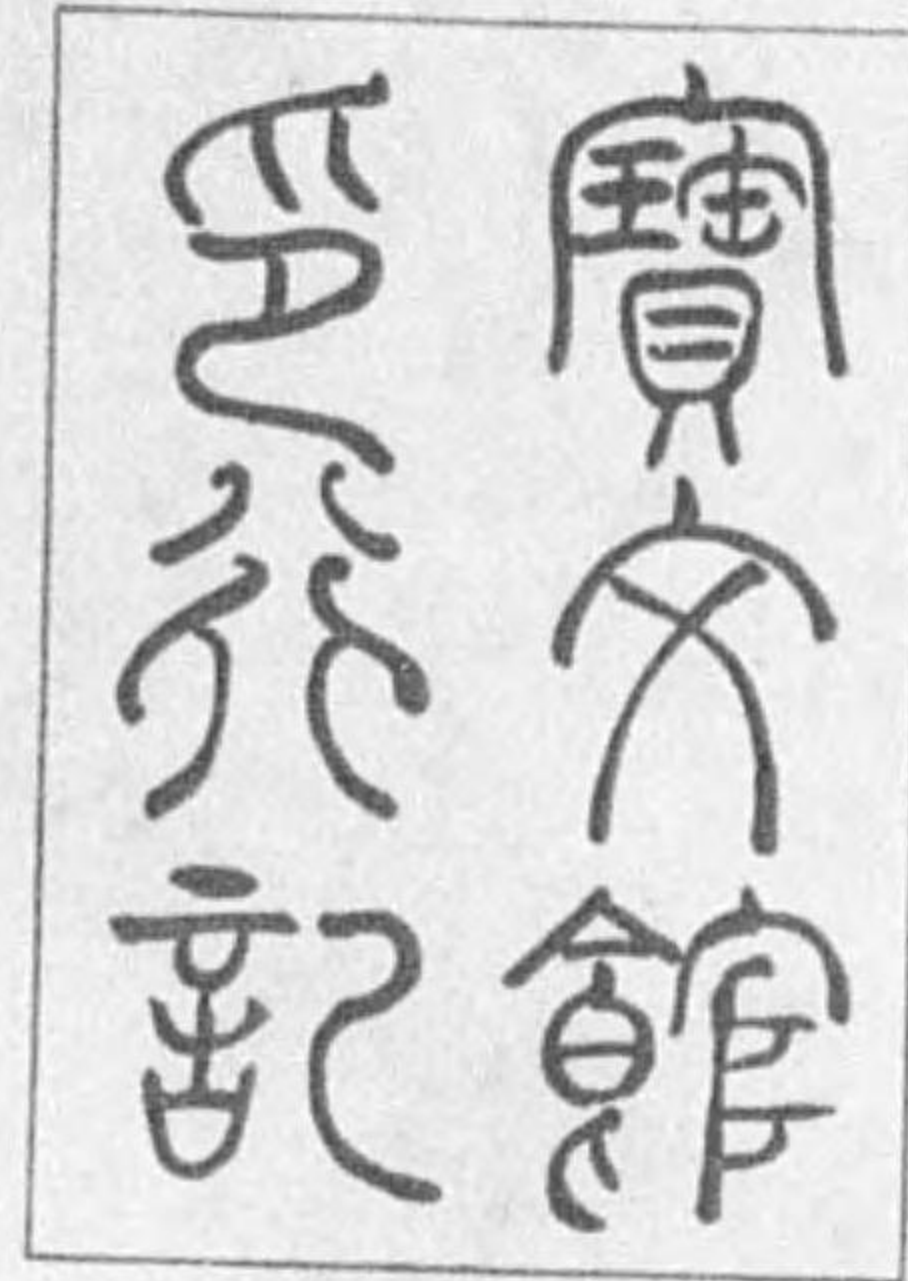 寶文館
印行記